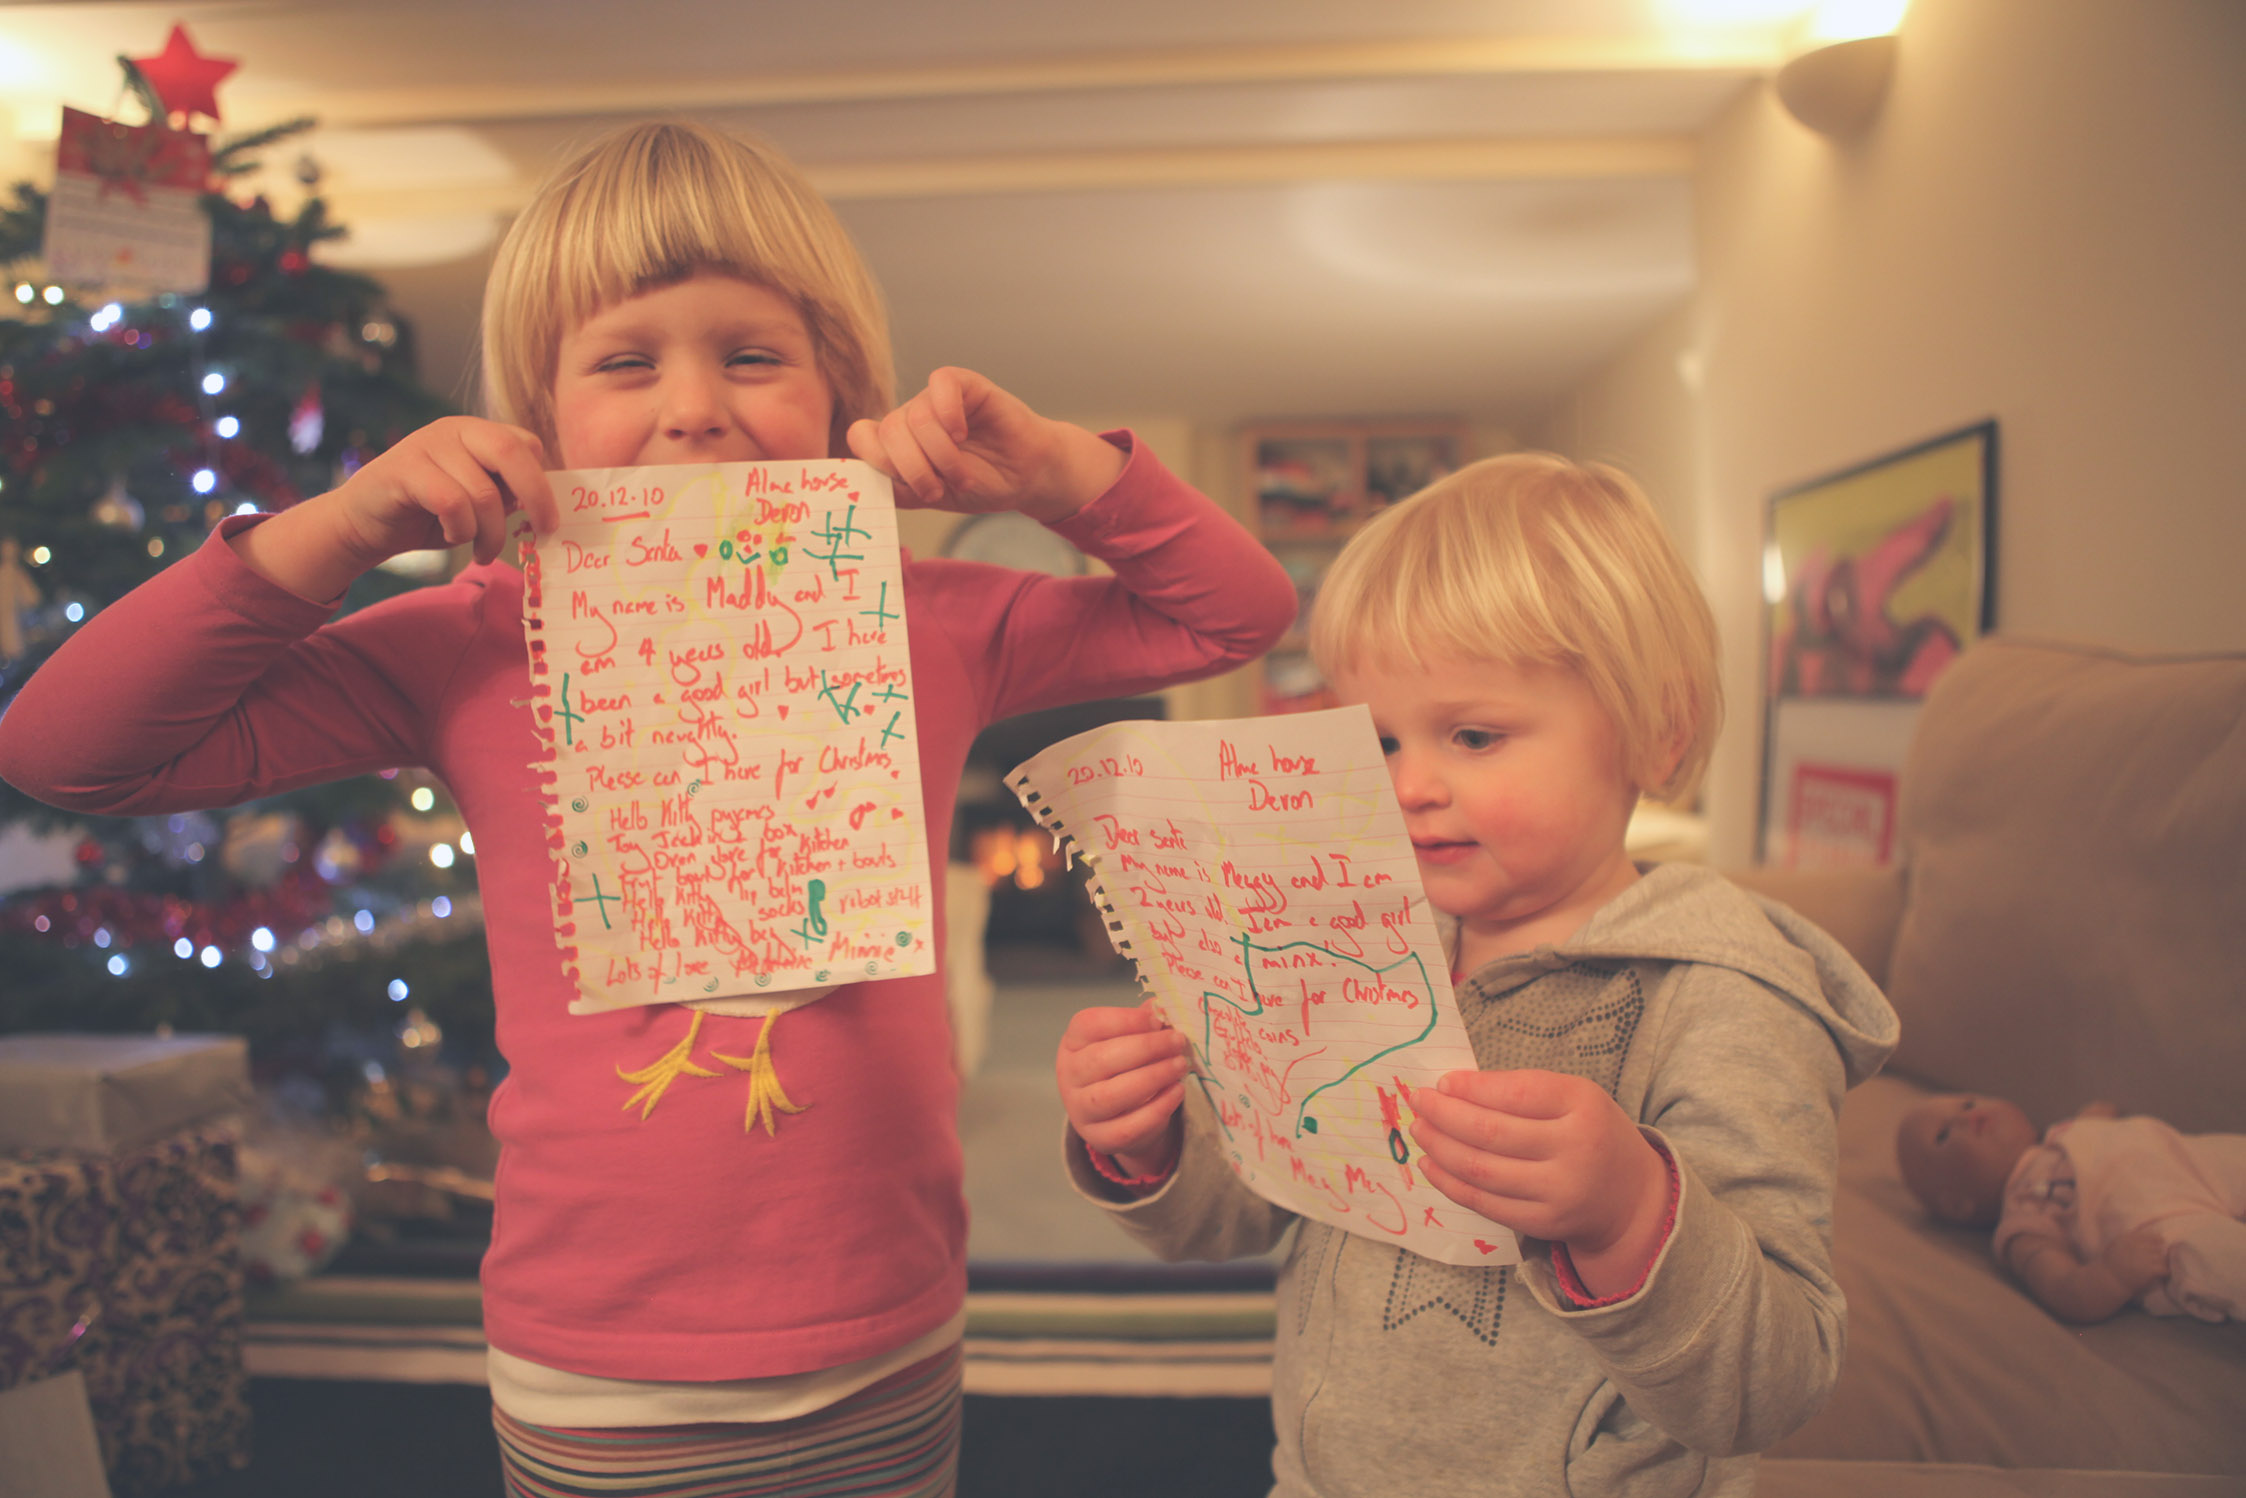 20.12.10
Alme house
Devon
Dear Santa
My name is Maddy and I
am 4 years old. I have
been a good girl but sometimes
a bit naughty.
Please can I have for Christmas
Hello Kitty
Toy Jack in a box
Oven glove for kitchen
Fruit bowl for kitchen + bowls
Hello Kitty lip balm
Hello Kitty socks
robot stuff
Hello Kitty bag
Lots of love Minnie x
20.12.10
Alme house
Devon
Dear santa
My name is Meggy and I am
2 years old. I am a good girl
but also a minx.
Please can I have for Christmas
chocolate coins
Lots of love
Meg Meg
x